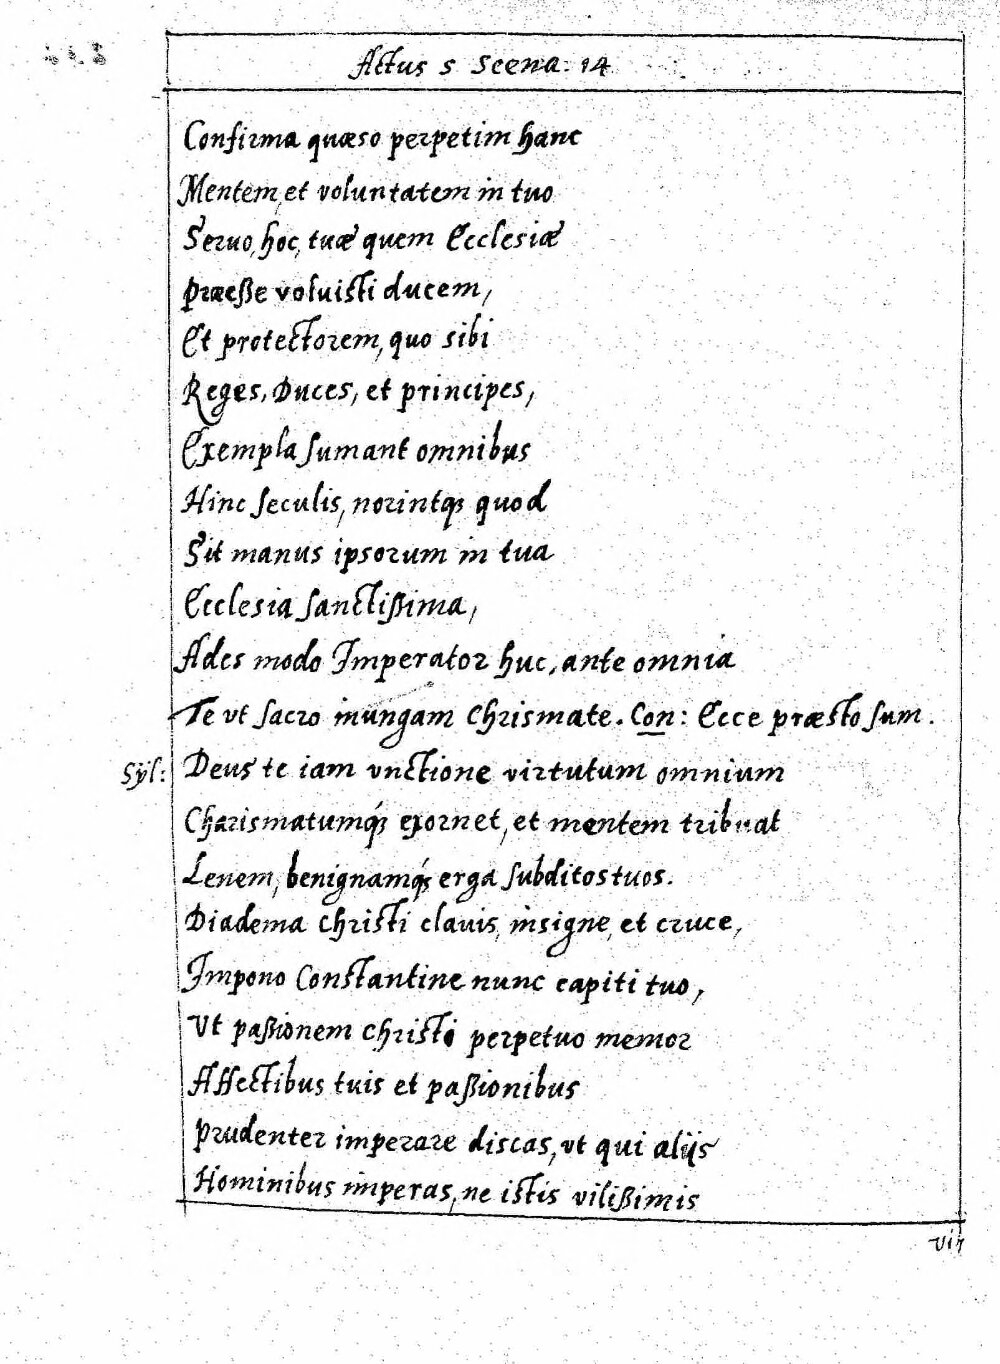 Actus 5 Scena. 14
Confirma quæso perpetim hanc
Mentem, et voluntatem in tuo
Seruo, hoc, tuæ quem Ecclesiæ
Præesse voluisti ducem,
Et protectorem, quo sibi
Reges, Duces, et principes,
Exempla sumant omnibus
Hinc seculis, norintqꝫ quod
Sit manus ipsorum in tua
Ecclesia sanctißima,
Ades modo Imperator huc, ante omnia
Te vt sacro inungam Chrismate. Con: Ecce præsto sum.
Syl: Deus te iam vnctione virtutum omnium
Charismatumqꝫ exornet, et mentem tribuat
Lenem, benignamqꝫ erga subditos tuos.
Diadema Christi clauis, insigne, et cruce,
Impono Constantine nunc capiti tuo,
Vt paßionem Christi perpetuo memor
Affectibus tuis et paßionibus
Prudenter imperare discas, vt qui alijs
Hominibus imperas, ne istis vilißimis